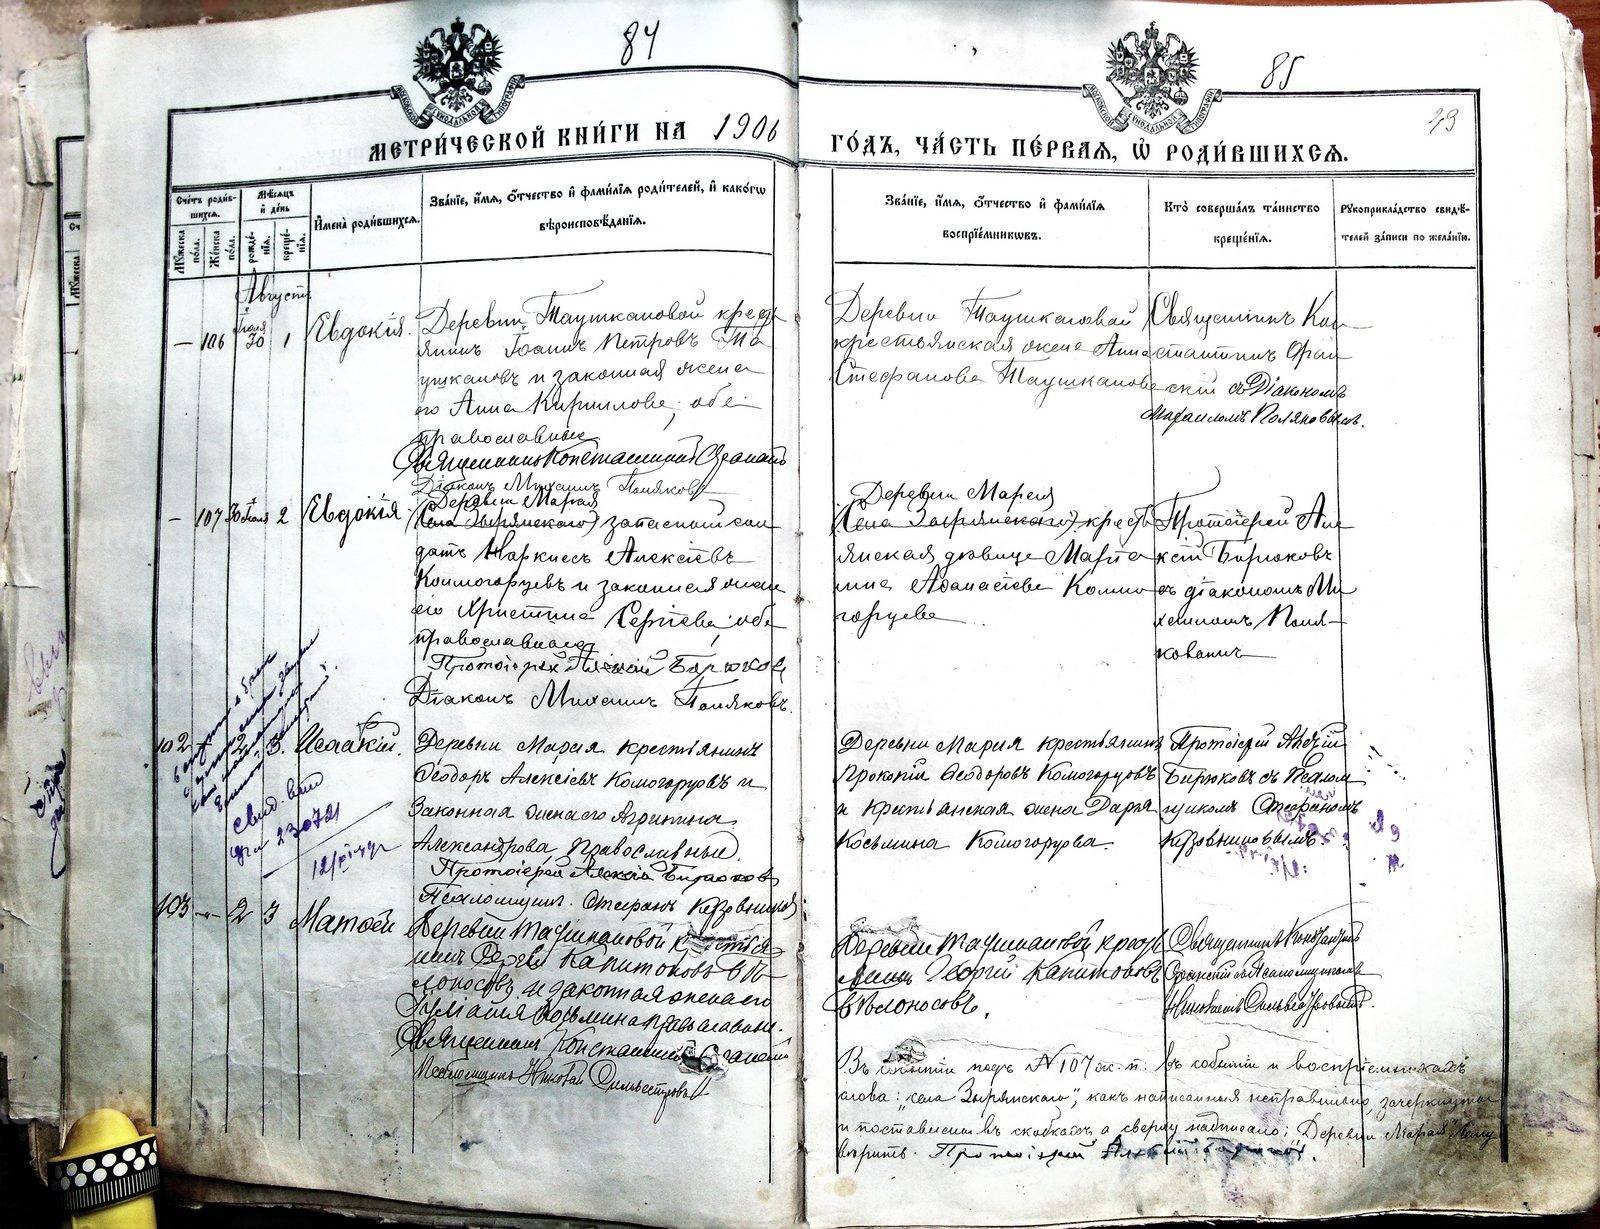 84
85
49
МЕТРИ́ЧЕСКОЙ КНИ́ГИ НА 1906 ГО́ДЪ, ЧА́СТЬ ПЕ́РВАЯ, Ѡ РОДИ́ВШИХСЯ.
Сче́тъ роди́вшихся.
Мѣ́сяцъ и҆ де́нь
И҆мена̀ роди́вшихся.
Зва́нїе, и҆́мя, ѻ҆́тчество и҆ фами́лїя роди́телей, и҆ како́гѡ
вѣроисповѣ́данїя.
Мꙋ́жеска по́ла.
Же́нска по́ла.
рожде́нїя.
креще́нїя.
Зва́нїе, и҆́мя, ѻ҆́тчество и҆ фами́лїя
воспрїе́мникѡвъ.
Кто̀ соверша́лъ та́инство
креще́нїя.
Рꙋкоприкла́дство свидѣ́-
телей за́писи по жела́нїю.
Августъ
— 106 Іюля 30 1 Евдокія.
Деревни Таушкановой кресть
янинъ Іоаннъ Петровъ Та
ушкановъ и законная жена
его Анна Кириллова, обе
православные
Священникъ Константинъ
Діаконъ Михаилъ Поляковъ
Деревни Таушкановой
крестьянская жена Анна
Стефанова Таушканова
Священникъ Кон-
стантинъ
скій съ Діакономъ
Михаиломъ Поляковымъ.
— 107 30 Іюля 2 Евдокія
Деревни Марая
(Села Зырянскаго) запасный сол
датъ Наркиссъ Алексіевъ
Колмогорцевъ и законная жена
его Христина Сергіева, обе
православные
Протоіерей Алексій Бирюковъ
Діаконъ Михаилъ Поляковъ.
Деревни Марая
(Села Зырянскаго) кресть
янская девица Марта
Аѳанасіева Колмо
горцева
Протоіерей Але
ксій Бирюковъ
съ діакономъ Ми
хаиломъ Поля-
ковымъ
102 2 3. Исаакій.
Деревни Марая крестьянинъ
Ѳеодоръ Алексіевъ Комогорцовъ и
Законная жена его Агрипина
Александрова, Православные.
Протоіерей Алексій Бирюковъ
Псаломщикъ Стефанъ Кузовниковъ
Деревни Марая крестьянинъ
Прокопій Ѳеодоровъ Комогорцовъ
и крестьянская жена Дарья
Косьмина Комогорцова.
Протоіерей Алексій
Бирюковъ съ Псалом
щикомъ Стефаномъ
Кузовниковымъ.
свид.
23072
103 -"- 2 3 Матѳей
Деревни Таушкановой крестья
нинъ Сергій Капитоновъ Бѣ
лоносовъ, и законная жена его
Косьмина православные.
Священникъ Константинъ
Псаломщикъ Николай Сильвестровъ
Деревни Таушкановой кресть
янинъ Георгій Капитоновъ
Бѣлоносовъ.
Священникъ Константинъ
Псаломщикомъ
Николаемъ
Въ событіи подъ № 107 ж. п. въ событіи и воспріемникахъ
слова: "села Зырянскаго", какъ написанныя неправильно, зачеркнуты
и поставлены въ скобкахъ, а сверху надписано: "Деревни Марая" чему
вѣрить. Протоіерей Алексій Бирюковъ.